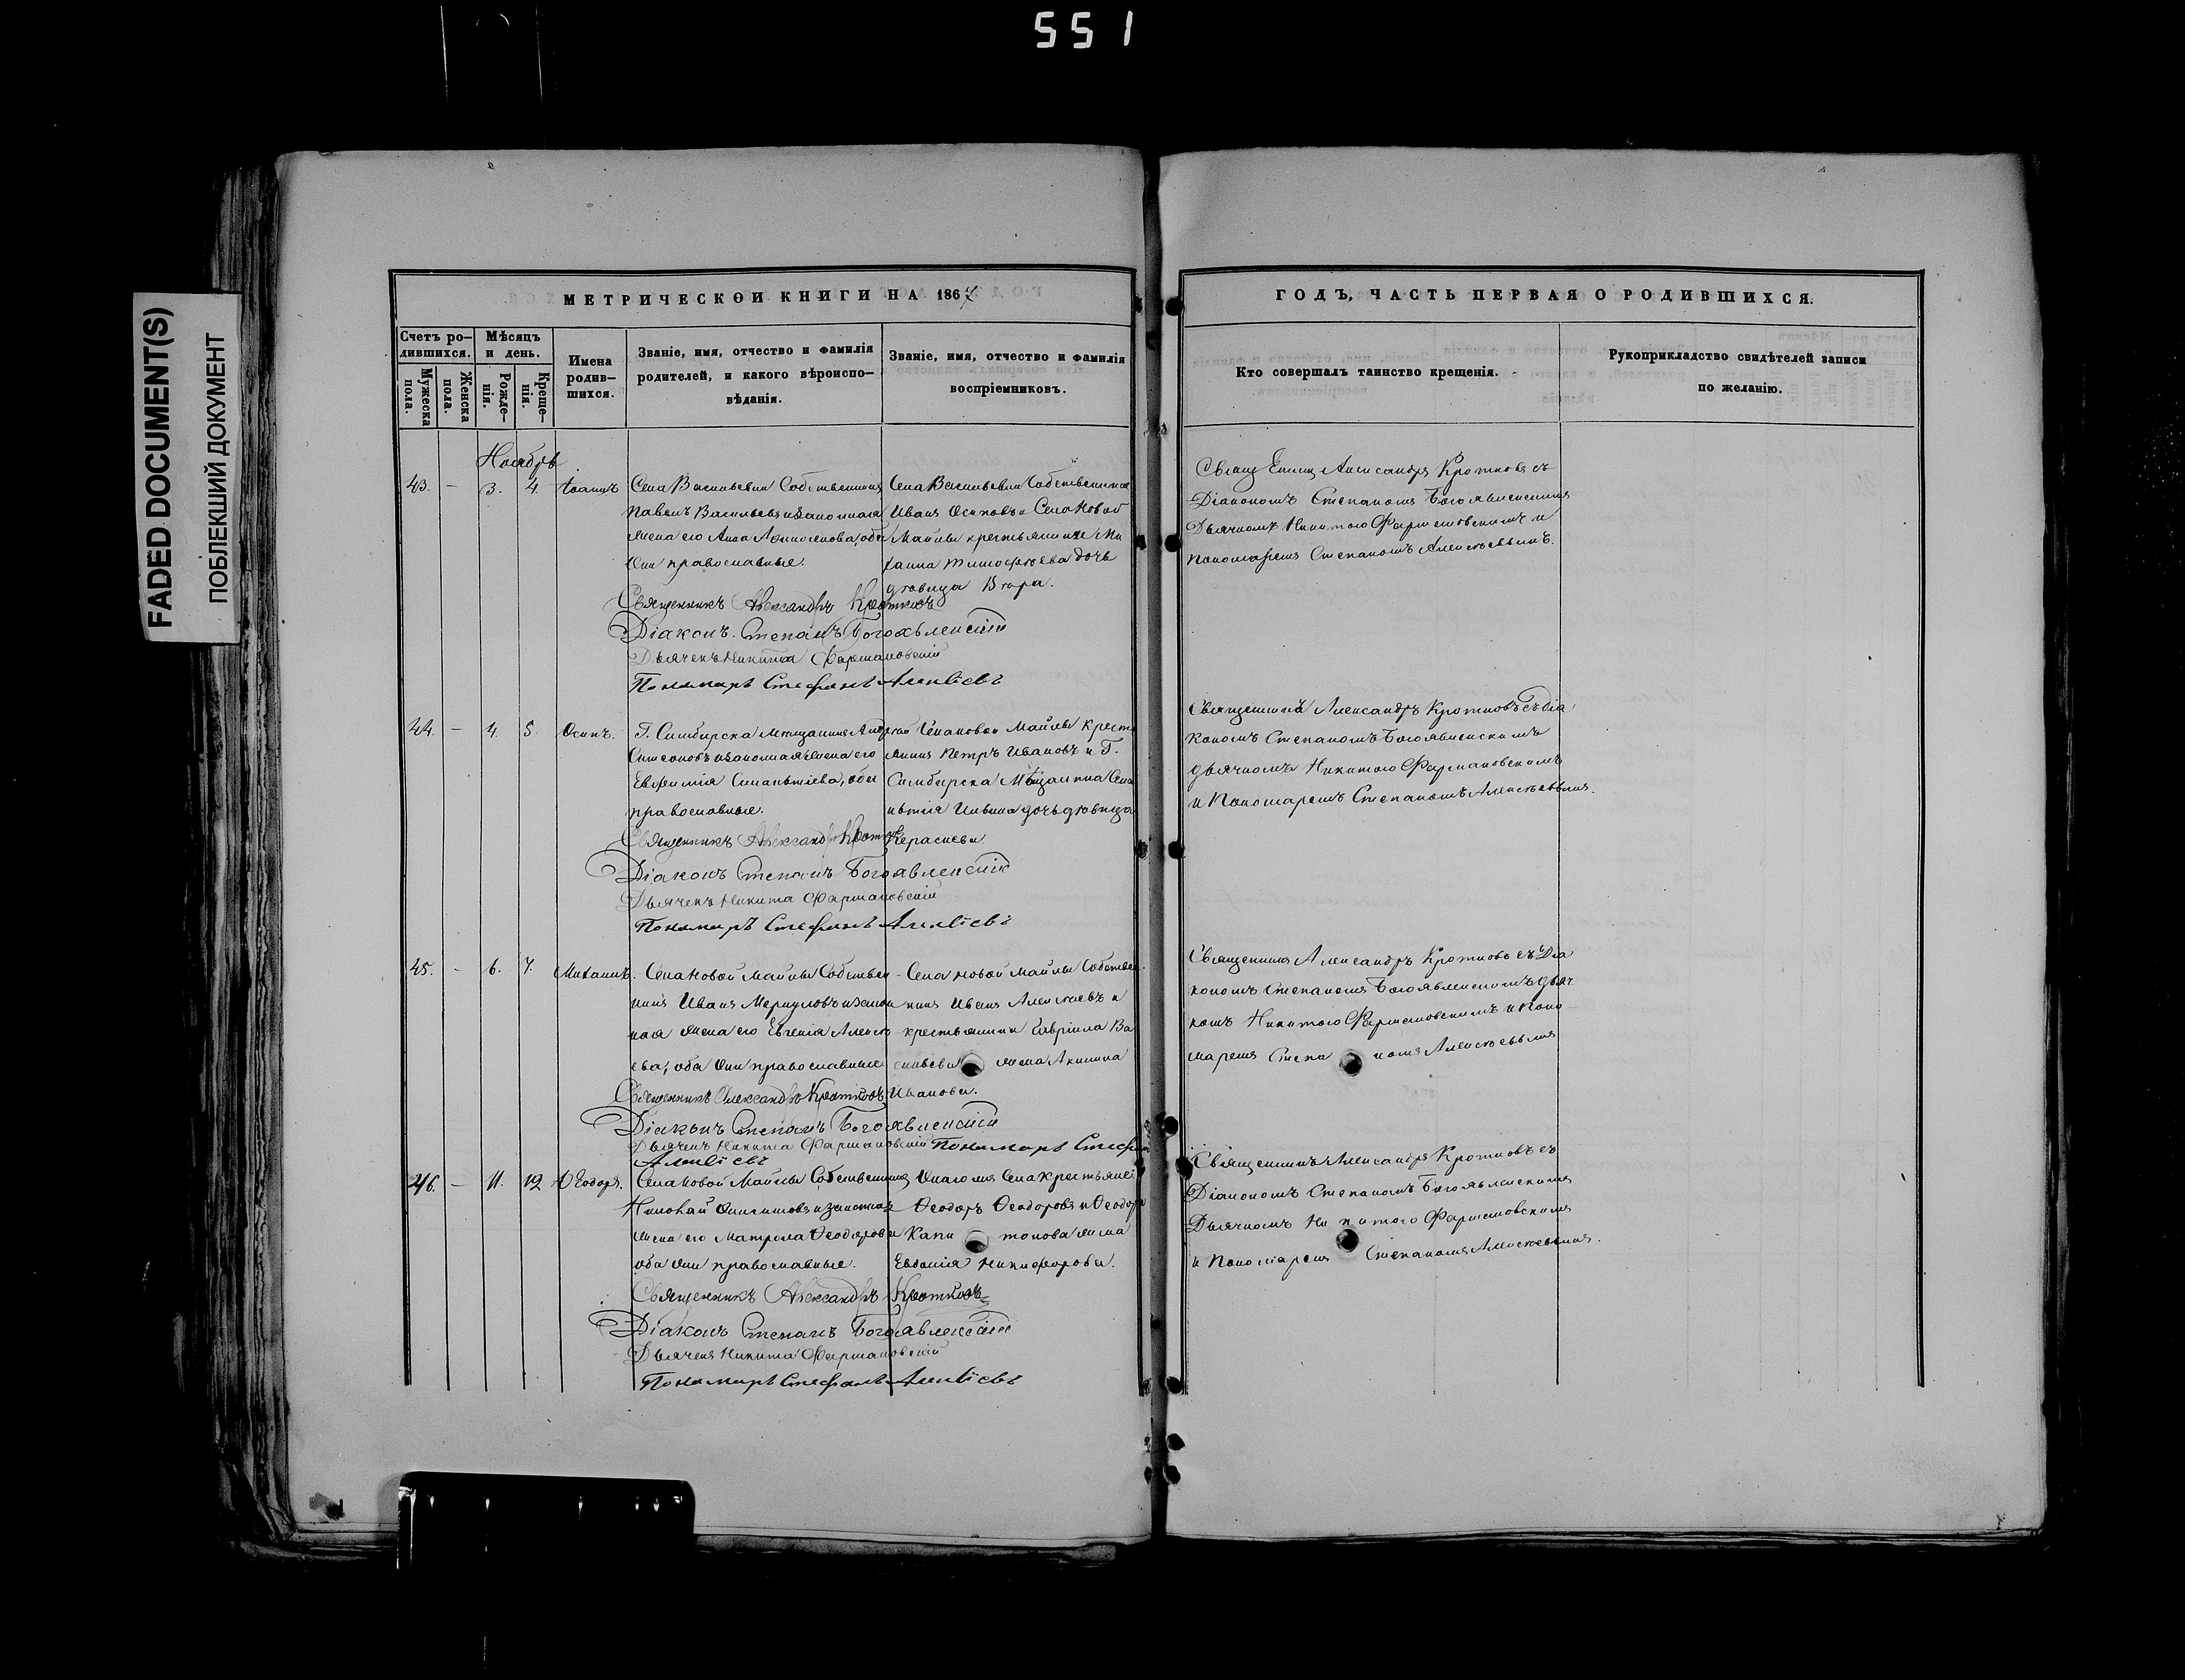 551
FADED DOCUMENT(S)
ПОБЛЕКШИЙ ДОКУМЕНТ
МЕТРИЧЕСКОЙ КНИГИ НА 1867
ГОДЪ, ЧАСТЬ ПЕРВАЯ О РОДИВШИХСЯ.
Счетъ ро-
дившихся.
Мужеска
пола.
Женска
пола.
Мѣсяцъ
и день.
Рожде-
нія.
Креще-
нія.
Имена
родив-
шихся.
Званіе, имя, отчество и фамилія
родителей, и какого вѣроиспо-
вѣданія.
Званіе, имя, отчество и фамилія
воспріемниковъ.
Кто совершалъ таинство крещенія.
Рукоприкладство свидѣтелей записи
по желанію.
Ноябрь
43. – 3. 4. Іоаннъ
Села Васильевки Собственникъ
Павелъ Васильевъ и законная
жена его Анна, оба
они православные.
Села Васильевки Собственникъ
Иванъ Осиповъ и Села Новой
Майны крестьянина Ми
хаила Тимофѣева дочь
дѣвица Вѣра.
Александръ Кротковъ съ
Діакономъ Степаномъ Богоявленскимъ
Дьячкомъ Никитою Фармаковскимъ и
Пономаремъ Степаномъ Алексѣевымъ.
Священникъ Александръ Кротковъ
Діаконъ Степанъ Богоявленскій
Дьячекъ Никита Фармаковскій
Пономарь Стефанъ
44. – 4. 5. Осипъ.
Г. Симбирска мѣщанинъ Андрей
Симеоновъ и законная жена его
Евфимія, оба
православные.
Села Новой Майны крестья
нинъ Петръ Ивановъ и Г.
Симбирска Мѣщанина
Ильина дочь дѣвица
Священникъ Александръ Кротковъ съ Діа
кономъ Степаномъ Богоявленскимъ
дьячкомъ Никитою Фармаковскимъ
и Пономаремъ Степаномъ Алексѣевымъ.
Священникъ Александръ Кротковъ
Діаконъ Степанъ Богоявленскій
Дьячекъ Никита Фармаковскій
Пономарь Стефанъ
45. – 6. 7. Михаилъ.
Села Новой Майны Собствен-
никъ Иванъ Меркуловъ и закон
ная жена его Евгенія Алексѣ
ева, оба они православные
Села Новой Майны Собствен-
никъ Иванъ Алексѣевъ и
крестьянина Гавріила Ва
сильева жена Акилина
Иванова.
Священникъ Александръ Кротковъ съ Діа
кономъ Степаномъ Богоявленскимъ дьяч
комъ Никитою Фармаковскимъ и Поно-
маремъ Степаномъ Алексѣевымъ
Священникъ Александръ Кротковъ
Діаконъ Степанъ Богоявленскій
Дьячекъ Никита Фармаковскій Пономарь Стефанъ
46. – 11. 12 Ѳеодоръ.
Села Новой Майны Собственникъ
Николай и законная
жена его Матрона Ѳеодорова
оба они православные.
Онагожъ Села крестьяне:
Ѳеодоръ Ѳеодоровъ и Ѳеодора
Капитонова жена
Евдокія Никифорова.
Священникъ Александръ Кротковъ съ
Діакономъ Степаномъ Богоявленскимъ
Дьячкомъ Никитою Фармаковскимъ
и Пономаремъ Степаномъ Алексѣевымъ.
Священникъ Александръ Кротковъ
Діаконъ Степанъ Богоявленскій
Дьячекъ Никита Фармаковскій
Пономарь Стефанъ